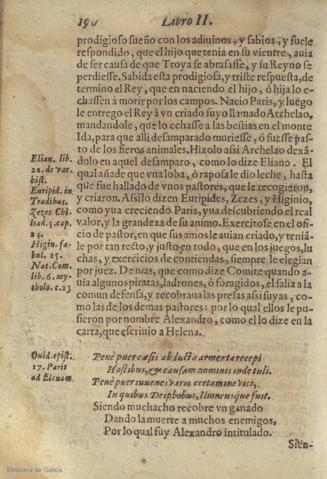 190 Libro II.
prodigioso sueño con los adiuinos, y sabios, y fuele
respondido, que el hijo que tenia en su vientre, auia
de ser causa de que Troya se abrasasse, y su Reyno se
perdiesse. Sabida esta prodigiosa, y triste respuesta, de
termino el Rey, que en naciendo el hijo, ò hija lo e-
chassen à morir por los campos. Nacio Paris, y luego
le entrego el Rey à vn criado suyo llamado Archelao,
mandandole, que lo echasse a las bestias en el monte
Ida, para que alli desamparado muriesse, ò fuesse pas-
to de los fieros animales. Hizolo assi Archelao dexã
dolo en aquel desamparo, como lo dize Eliano. El
qual añade que vna loba, ò raposa le dio leche, hasta
que fue hallado de vnos pastores, que le recogieron,
y criaron. Assilo dizen Euripides, Zezes, y Higinio,
como yua creciendo Paris, yua descubriendo el real
valor, y la grandeza de su animo. Exercitose en el ofi-
cio de pastor, en que sus amos le auian criado, y tenia-
le por tan recto, y justo en todo, que en los juegos, lu
chas, y exercicios de contiendas, siempre le elegian
por juez. De mas, que como dize Comite quando a-
uia algunos piratas, ladrones, ò foragidos, el salia a la
comun defensa, y recobraua las presas assi suyas, co-
mo las de los demas pastores: por lo qual ellos le pu-
sieron por nombre Alexandro, como el lo dize en la
carta, que escriuio a Helena.
Elian. lib.
12. de var.
hist.
Euripid. in
Tradibus.
Zezes Chi-
liad. 5. cap.
24.
Higin. fa-
bul. 25.
Nat. Com.
lib. 6. my-
tholo. c. 23
Ouid. epist.
17. Paris
ad Elenam.
Penè puer cæsis abducta armenta recepi
Hostibus, & causam nominis inde tuli.
Penè puer iuuenes vario certamine vici,
In quibus Deiphobus, Ilioneusque fuit.
Siendo muchacho recobre vn ganado
Dando la muerte a muchos enemigos,
Por lo qual fuy Alexandro intitulado.
Sien-
Biblioteca de Galicia